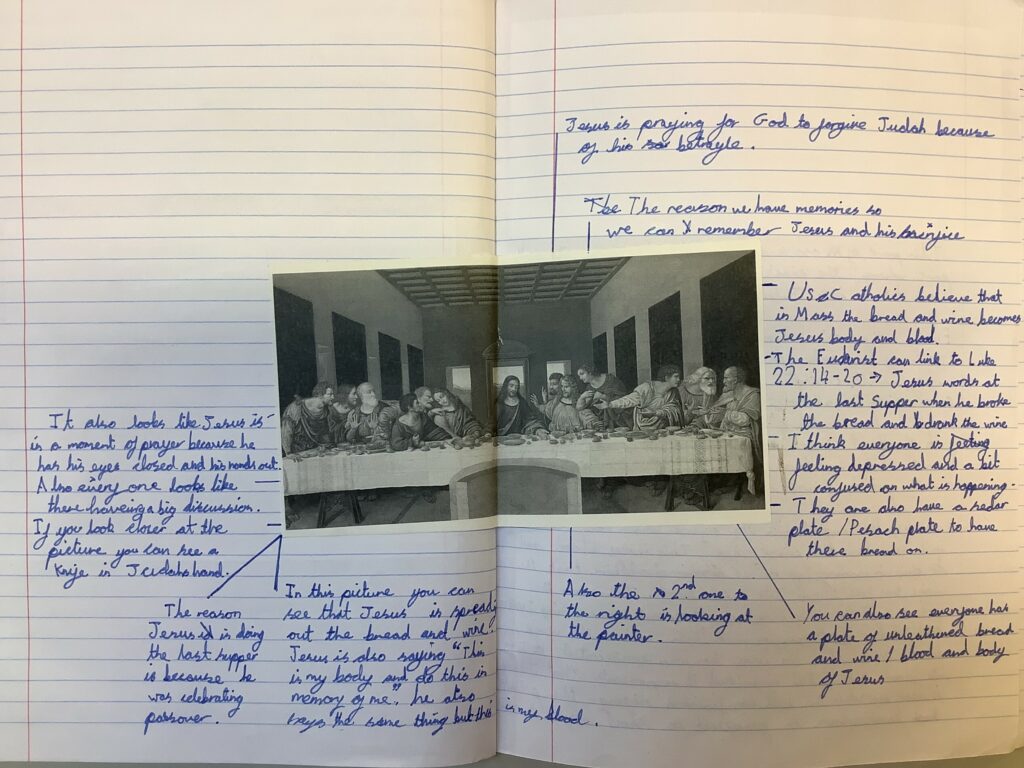 Jesus is praying for God to forgive Judah because
of his betrayle.
The The reason we have memories so
we can remember Jesus and his sacrifice
Us Catholics believe that
in Mass the bread and wine becomes
Jesus body and blood.
The Eucharist can link to Luke
22:14-20 → Jesus words at
the last supper when he broke
the bread and drank the wine
I think everyone is feeling
feeling depressed and a bit
confused on what is happening.
They are also have a sedar
plate / Pesach plate to have
there bread on.
It also looks like Jesus is
in a moment of prayer because he
has his eyes closed and his hands out.
Also every one looks like
there having a big discussion.
If you look closer at the
picture you can see a
knife in Judahs hand.
The reason
Jesus is doing
the last supper
is because he
was celebrating
passover.
In this picture you can
see that Jesus is spready
out the bread and wine.
Jesus is also saying "This
is my body and do this in
memory of me", he also
says the same thing but this is my blood.
Also the 2nd one to
the right is looking at
the painter.
You can also see everyone has
a plate of unleathened bread
and wine / blood and body
of Jesus